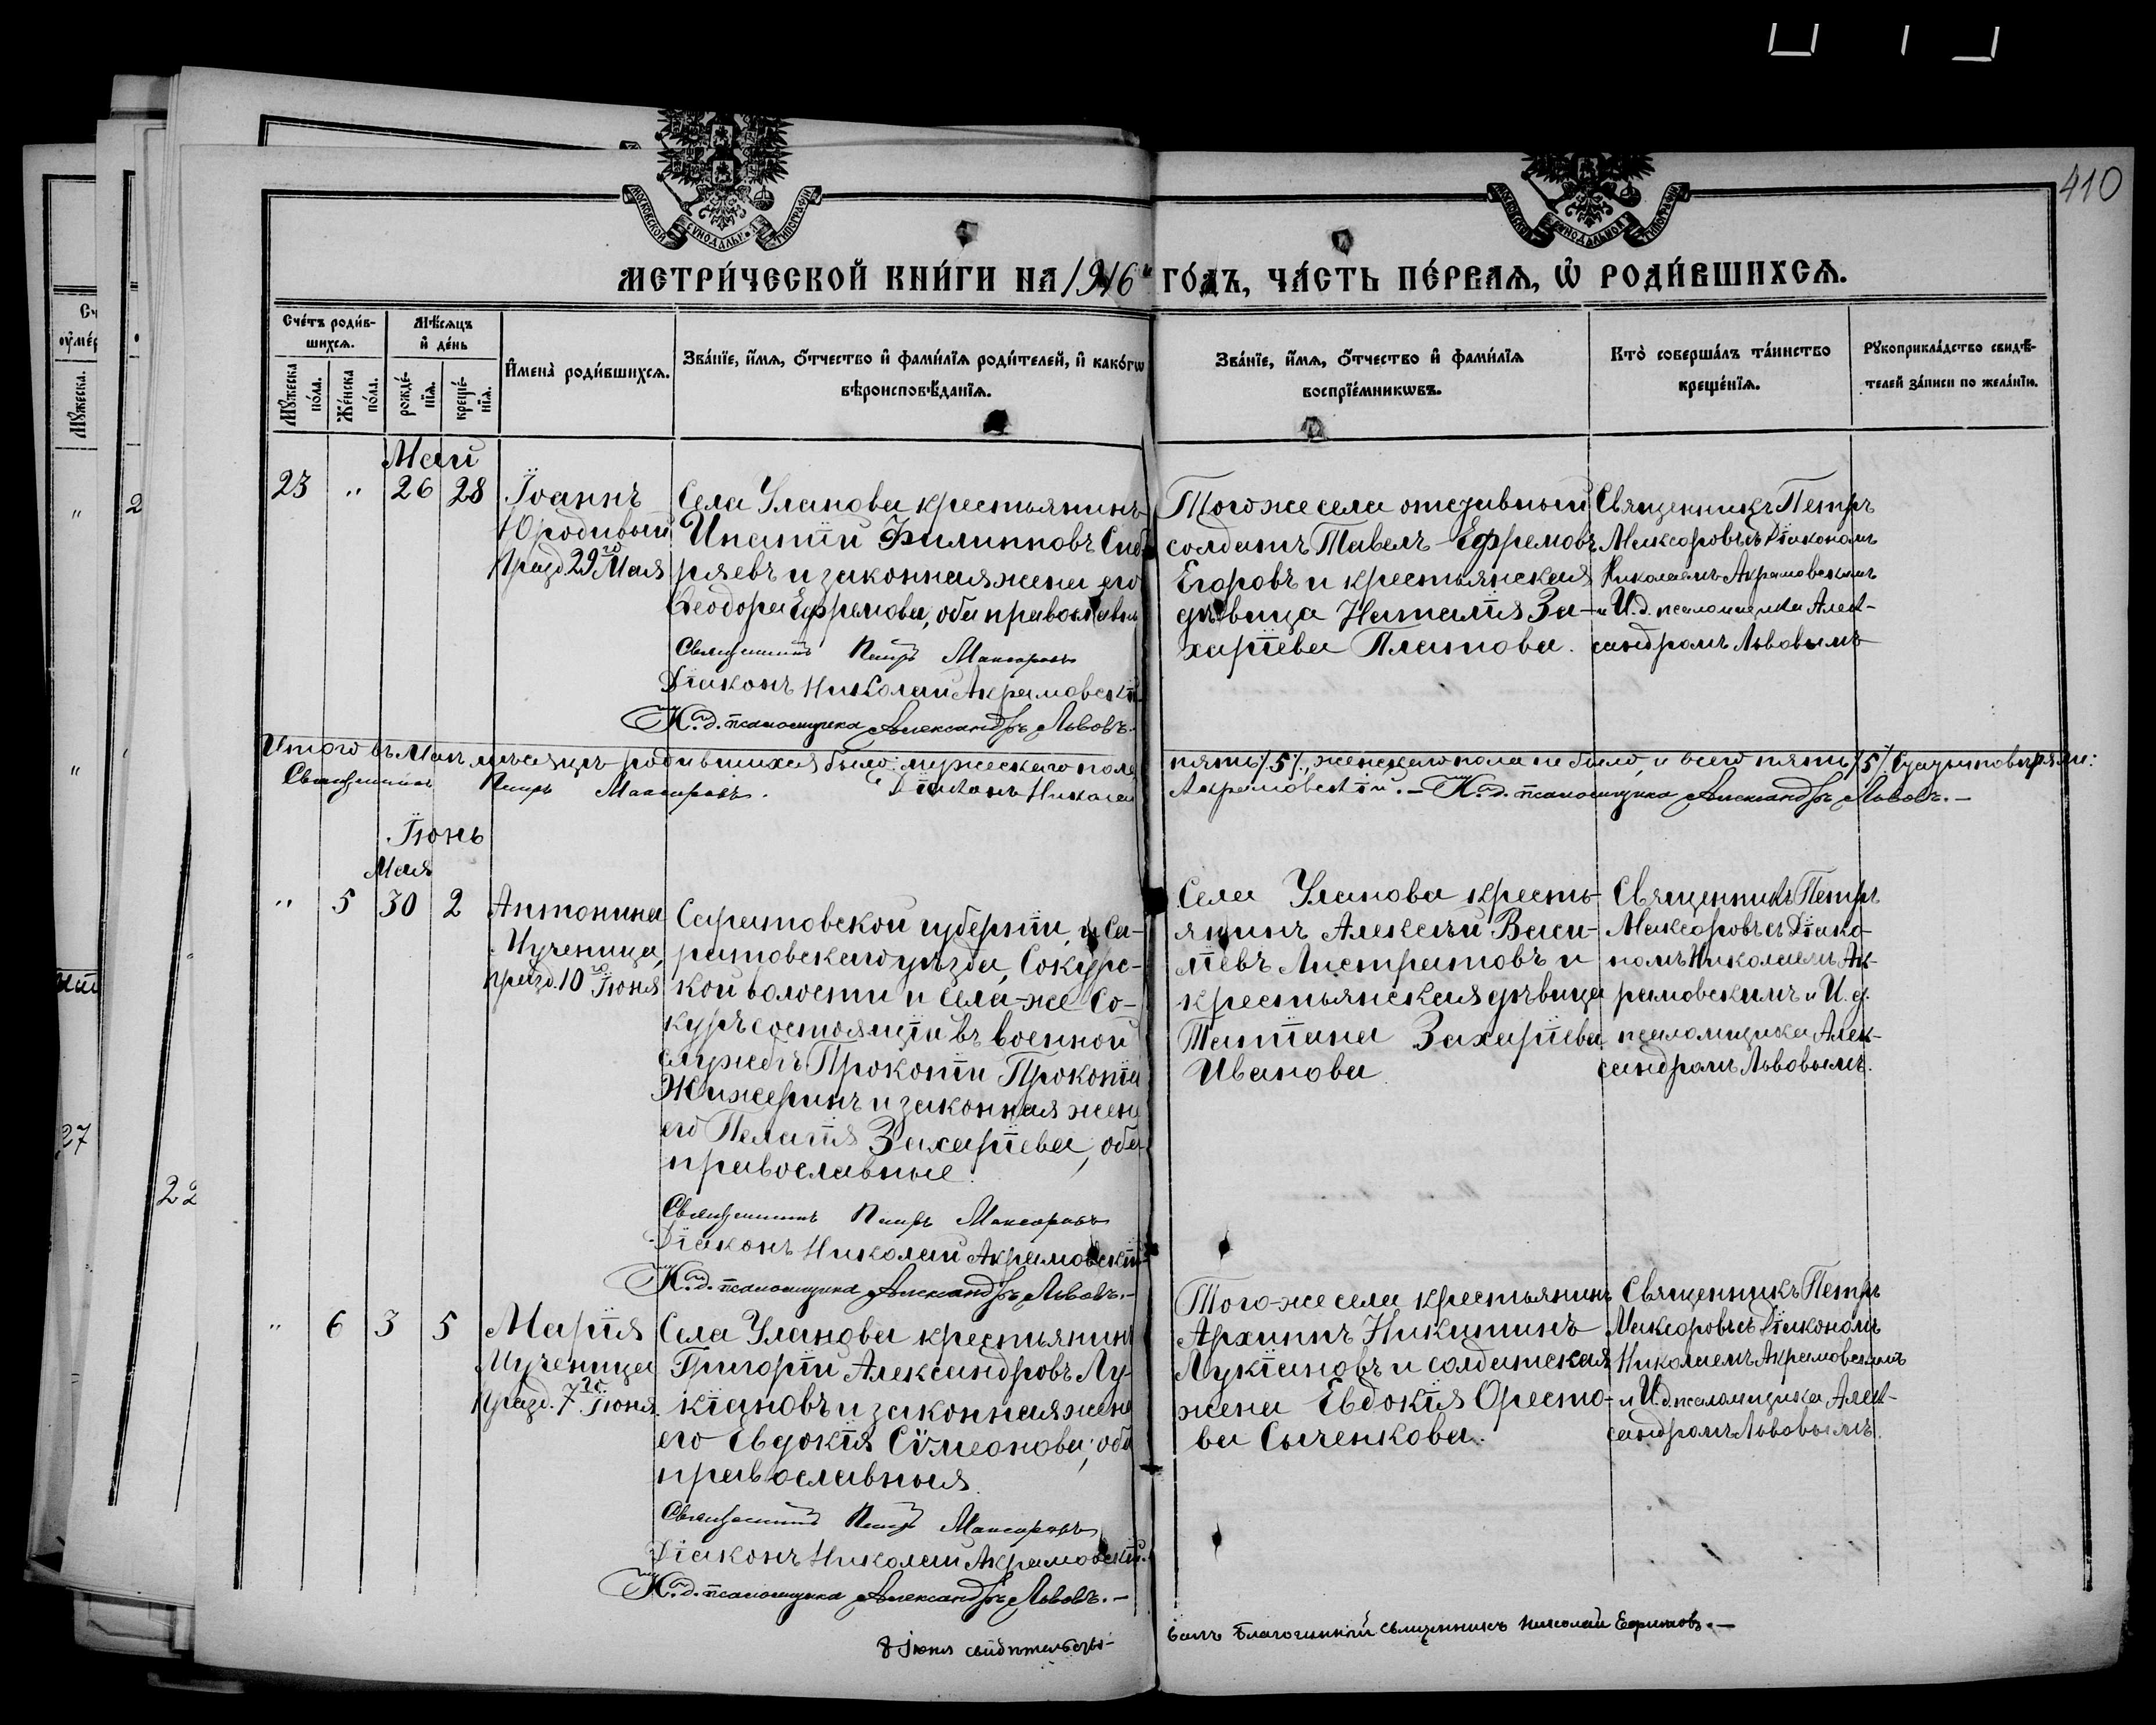 410
МОСКОВСКОЙ СУНОДАЛЬНОЙ ТИПОГРАФІИ
МОСКОВСКОЙ СУНОДАЛЬНОЙ ТИПОГРАФІИ
МЕТРИ́ЧЕСКОЙ КНИ́ГИ НА 1916 ГО́ДЪ, ЧА́СТЬ ПЕ́РВАѦ, Ѡ҆ РОДИ́ВШИХСѦ.
Сче́тъ роди́в-
шихсѧ.
Мѣ́сѧцъ
и҆ де́нь
Мꙋ́жеска по́ла.
Же́нска по́ла.
рожде́-
нїѧ.
креще́-
нїѧ.
И҆мена̀ роди́вшихсѧ.
Зва́нїе, и҆́мѧ, ѻ҆́тчество и҆ фами́лїѧ роди́телей, и҆ како́гѡ
вѣроисповѣ́данїѧ.
Зва́нїе, и҆́мѧ, ѻ҆́тчество и҆ фами́лїѧ
воспрїе́мникѡвъ.
Кто̀ соверша́лъ та́инство
креще́нїѧ.
Рꙋкоприкла́дство свидѣ́-
телей за́писи по жела́нїю.
Май
23 " 26 28
Іоаннъ
Юродивый
Празд. 29го Мая
Села Уланова крестьянинъ
Ипатій Филипповъ
ряевъ и законная жена его
Ѳеодора Ефремова, оба православн
Священникъ Петръ Максоровъ
Діаконъ Николай Акрамовскій
И. д. псаломщика Александръ Львовъ.
Того же села отставный
солдатъ Павелъ Ефремовъ
Егоровъ и крестьянская
дѣвица Наталія За-
харіева Платова.
Священникъ Петръ
Максоровъ съ Діакономъ
Николаемъ Акрамовскимъ
и И. д. псаломщика Алек-
сандромъ Львовымъ
Итого въ Маѣ мѣсяцѣ родившихся было: мужескаго пола пять /5/, женскаго пола не было, и всего пять /5/
Священникъ Петръ Максоровъ. Діаконъ Николай Акрамовскій. – И. д. псаломщика Александръ Львовъ. –
Іюнь
Мая
" 5 30 2
Антонина
Мученица,
празд. 10го Іюня
Саратовской губерніи, и Са-
ратовскаго уѣзда, Сокурс-
кой волости и села-же Со-
куръ состоящій въ военной
службѣ Прокопій Прокопіе
Жижеринъ и законная жена
его Пелагія Захаріева, оба
православные.
Священникъ Петръ Максоровъ
Діаконъ Николай Акрамовскій
И. д. псаломщика Александръ Львовъ. –
Села Уланова кресть-
янинъ Алексѣй Васи-
ліевъ Листратовъ и
крестьянская дѣвица
Татіана Захаріева
Иванова
Священникъ Петръ
Максоровъ съ Діако-
номъ Николаемъ Ак-
рамовскимъ и И. д.
псаломщика Алек-
сандромъ Львовымъ.
" 6 3 5
Марія
Мученица
празд. 7го Іюня.
Села Уланова крестьянинъ
Григорій Александровъ Лу-
кіановъ и законная жена
его Евдокія Сѵмеонова; оба
православныя.
Священникъ Петръ Максоровъ
Діаконъ Николай Акрамовскій.
И. д. псаломщика Александръ Львовъ. –
Того-же села крестьянинъ
Архиппъ Никитинъ
Лукіановъ и солдатская
жена Евдокія Оресто-
ва Сыченкова.
Священникъ Петръ
Максоровъ съ Діакономъ
Николаемъ Акрамовскимъ
и И. д. псаломщика Алек-
сандромъ Львовымъ.
8 Іюня свидѣтельство-
валъ Благочинный священникъ Николай Ефимовъ. –